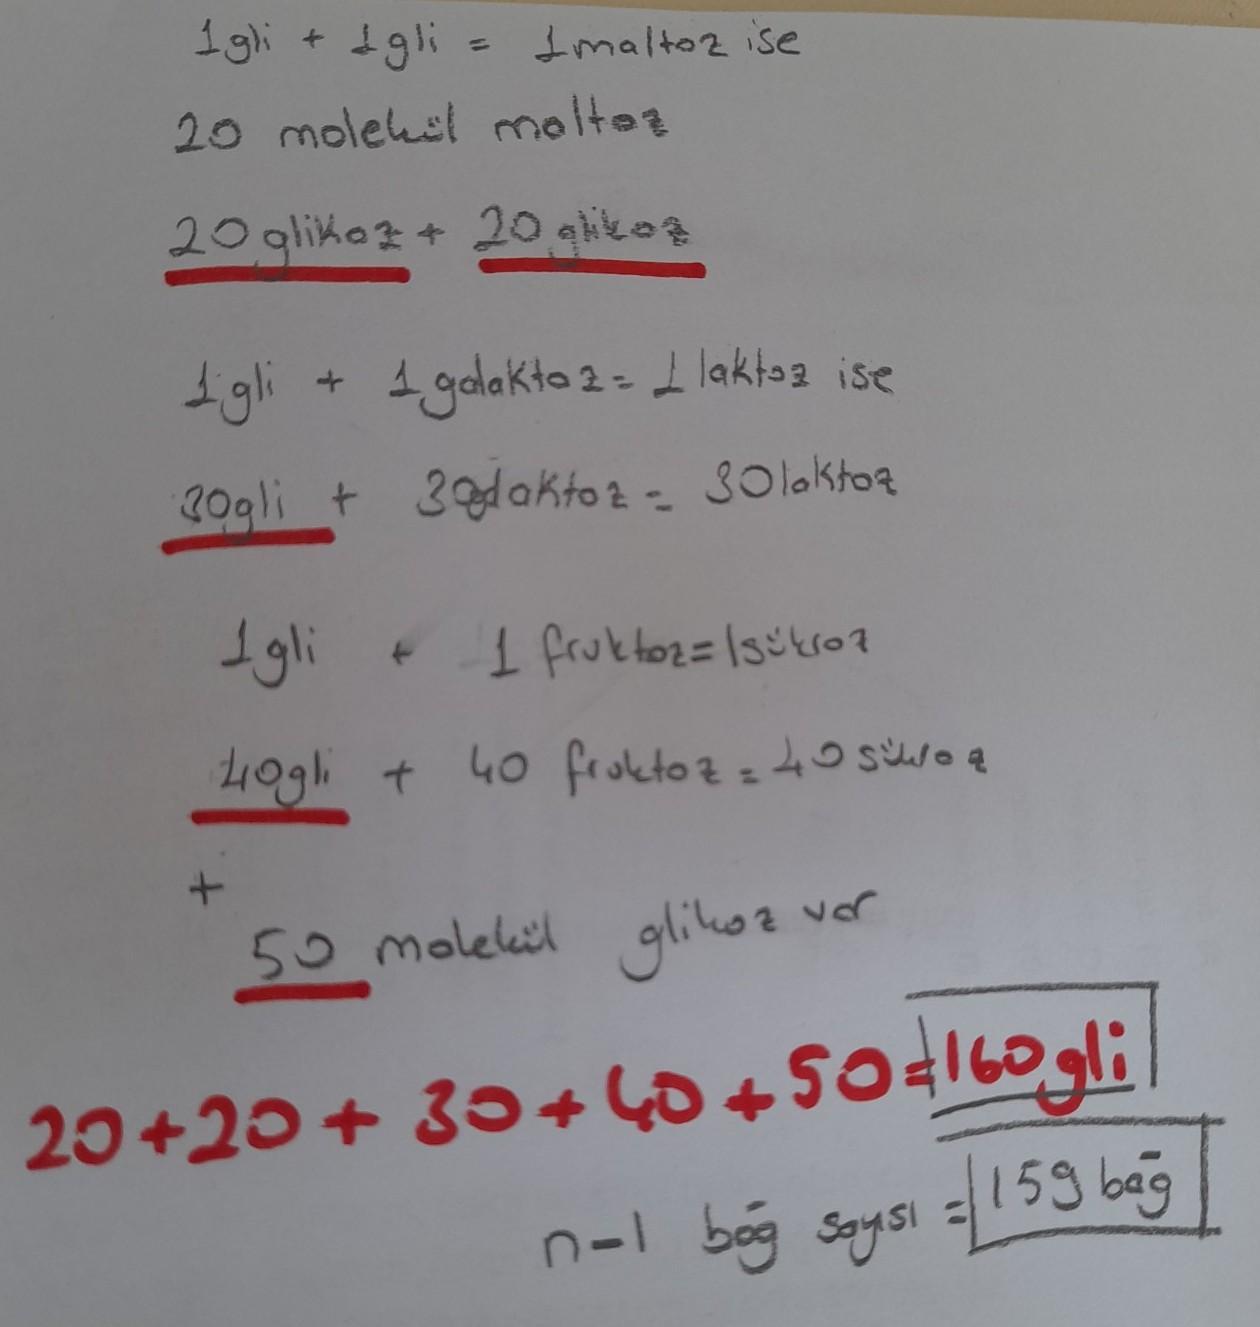 1gli + 1gli = 1maltoz ise
20 molekül maltoz
20glikoz + 20glikoz
1gli + 1galaktoz = 1 laktoz ise
30gli + 30galaktoz = 30laktoz
1gli + 1 fruktoz = 1sükroz
40gli + 40 fruktoz = 40sükroz
+
50 molekül glikoz var
20+20+30+40+50=160gli
n-1 bağ sayısı = 159 bağ